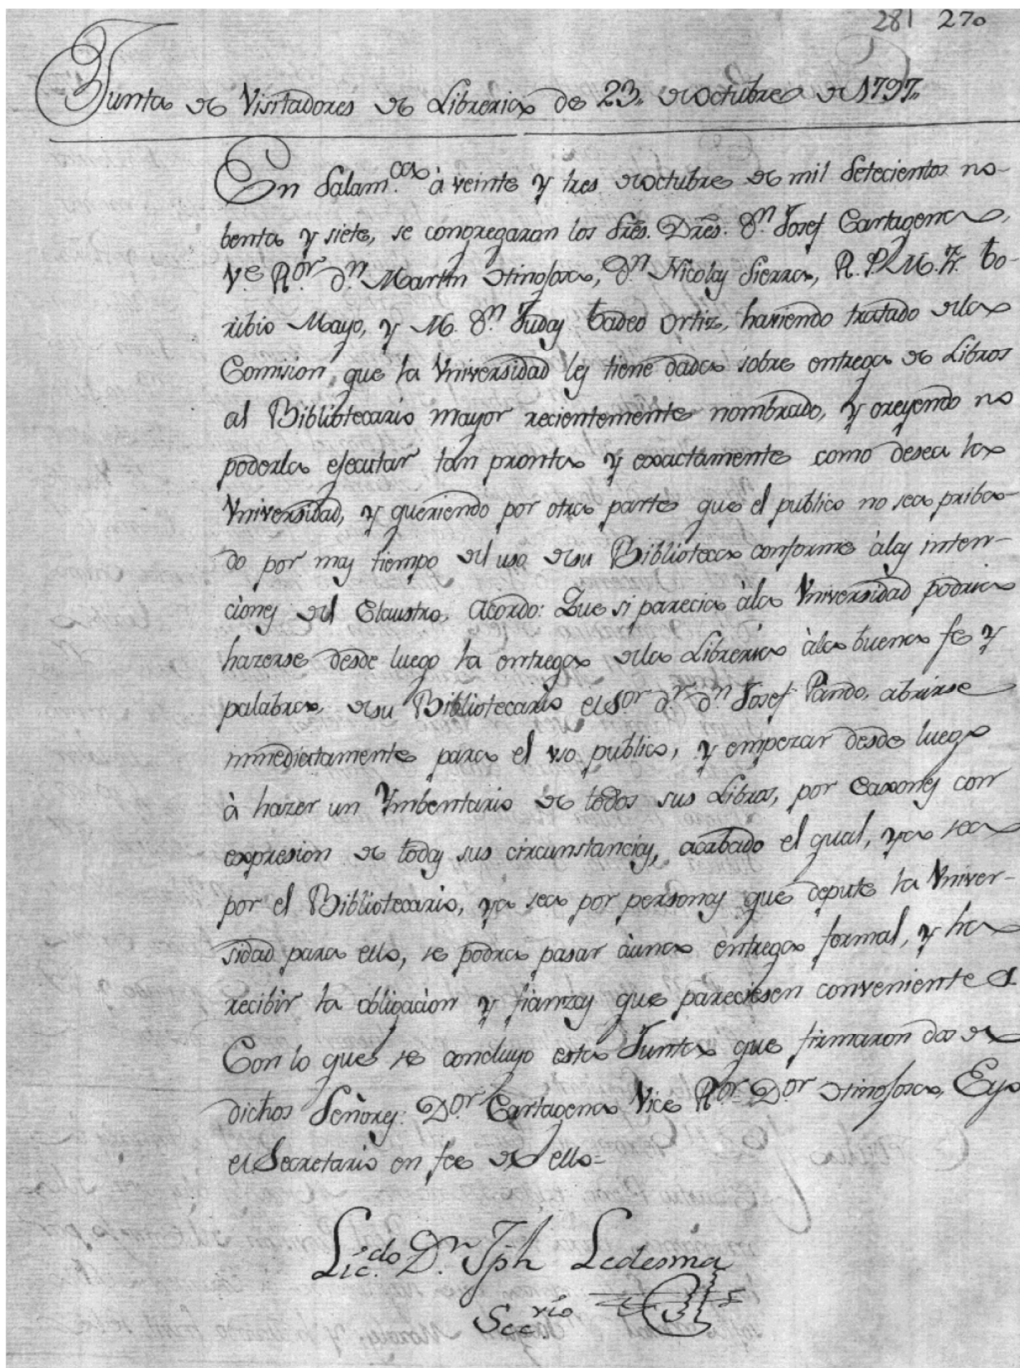 281 270
Junta de Visitadores de Libreria de 23. de octubre de 1797.
En Salam.ca à veinte y tres de octubre de mil setecientos no-
benta y siete, se congregaron los Sres. Dres. Dn. Josef Cartagena,
Ve. Ror. dn. Martin Hinojosa, Dn. Nicolas Sierra, R. P. M. Fr. to-
ribio Mayo, y M. Dn. Judas tadeo Ortiz, haviendo tratado de la
Comision, que la Vniversidad les tiene dada sobre entrega de Libros
al Bibliotecario mayor recientemente nombrado, y creyendo no
poderla ejecutar tan pronta y exactamente como desea la
Vniversidad, y queriendo por otra parte que el publico no sea priba-
do por mas tiempo del uso de su Biblioteca conforme à las inten-
ciones del Claustro, Acordo: Que si parecia à la Vniversidad podria
hazerse desde luego la entrega de la Libreria à la buena fe y
palabra de su Bibliotecario el Sor. dr. dn. Josef Pando, abrirse
inmediatamente para el vso publico, y empezar desde luego
à hazer un Ymbentario de todos sus Libros, por Caxones con
expresion de todas sus circunstancias, acabado el qual, ya sea
por el Bibliotecario, ya sea por personas que depute la Vniver-
sidad para ello, se podra pasar à una entrega formal, y ha
recibir la obligacion y fianzas que pareciesen conveniente s.
Con lo que se concluyo esta Junta que firmaron dos de
dichos Señores: Dor. Cartagena Vice Ror. Dor. Hinojosa, Eyo
el Secretario en fee de ello=
Lic.do Dn. Jph Ledesma
Sec.rio